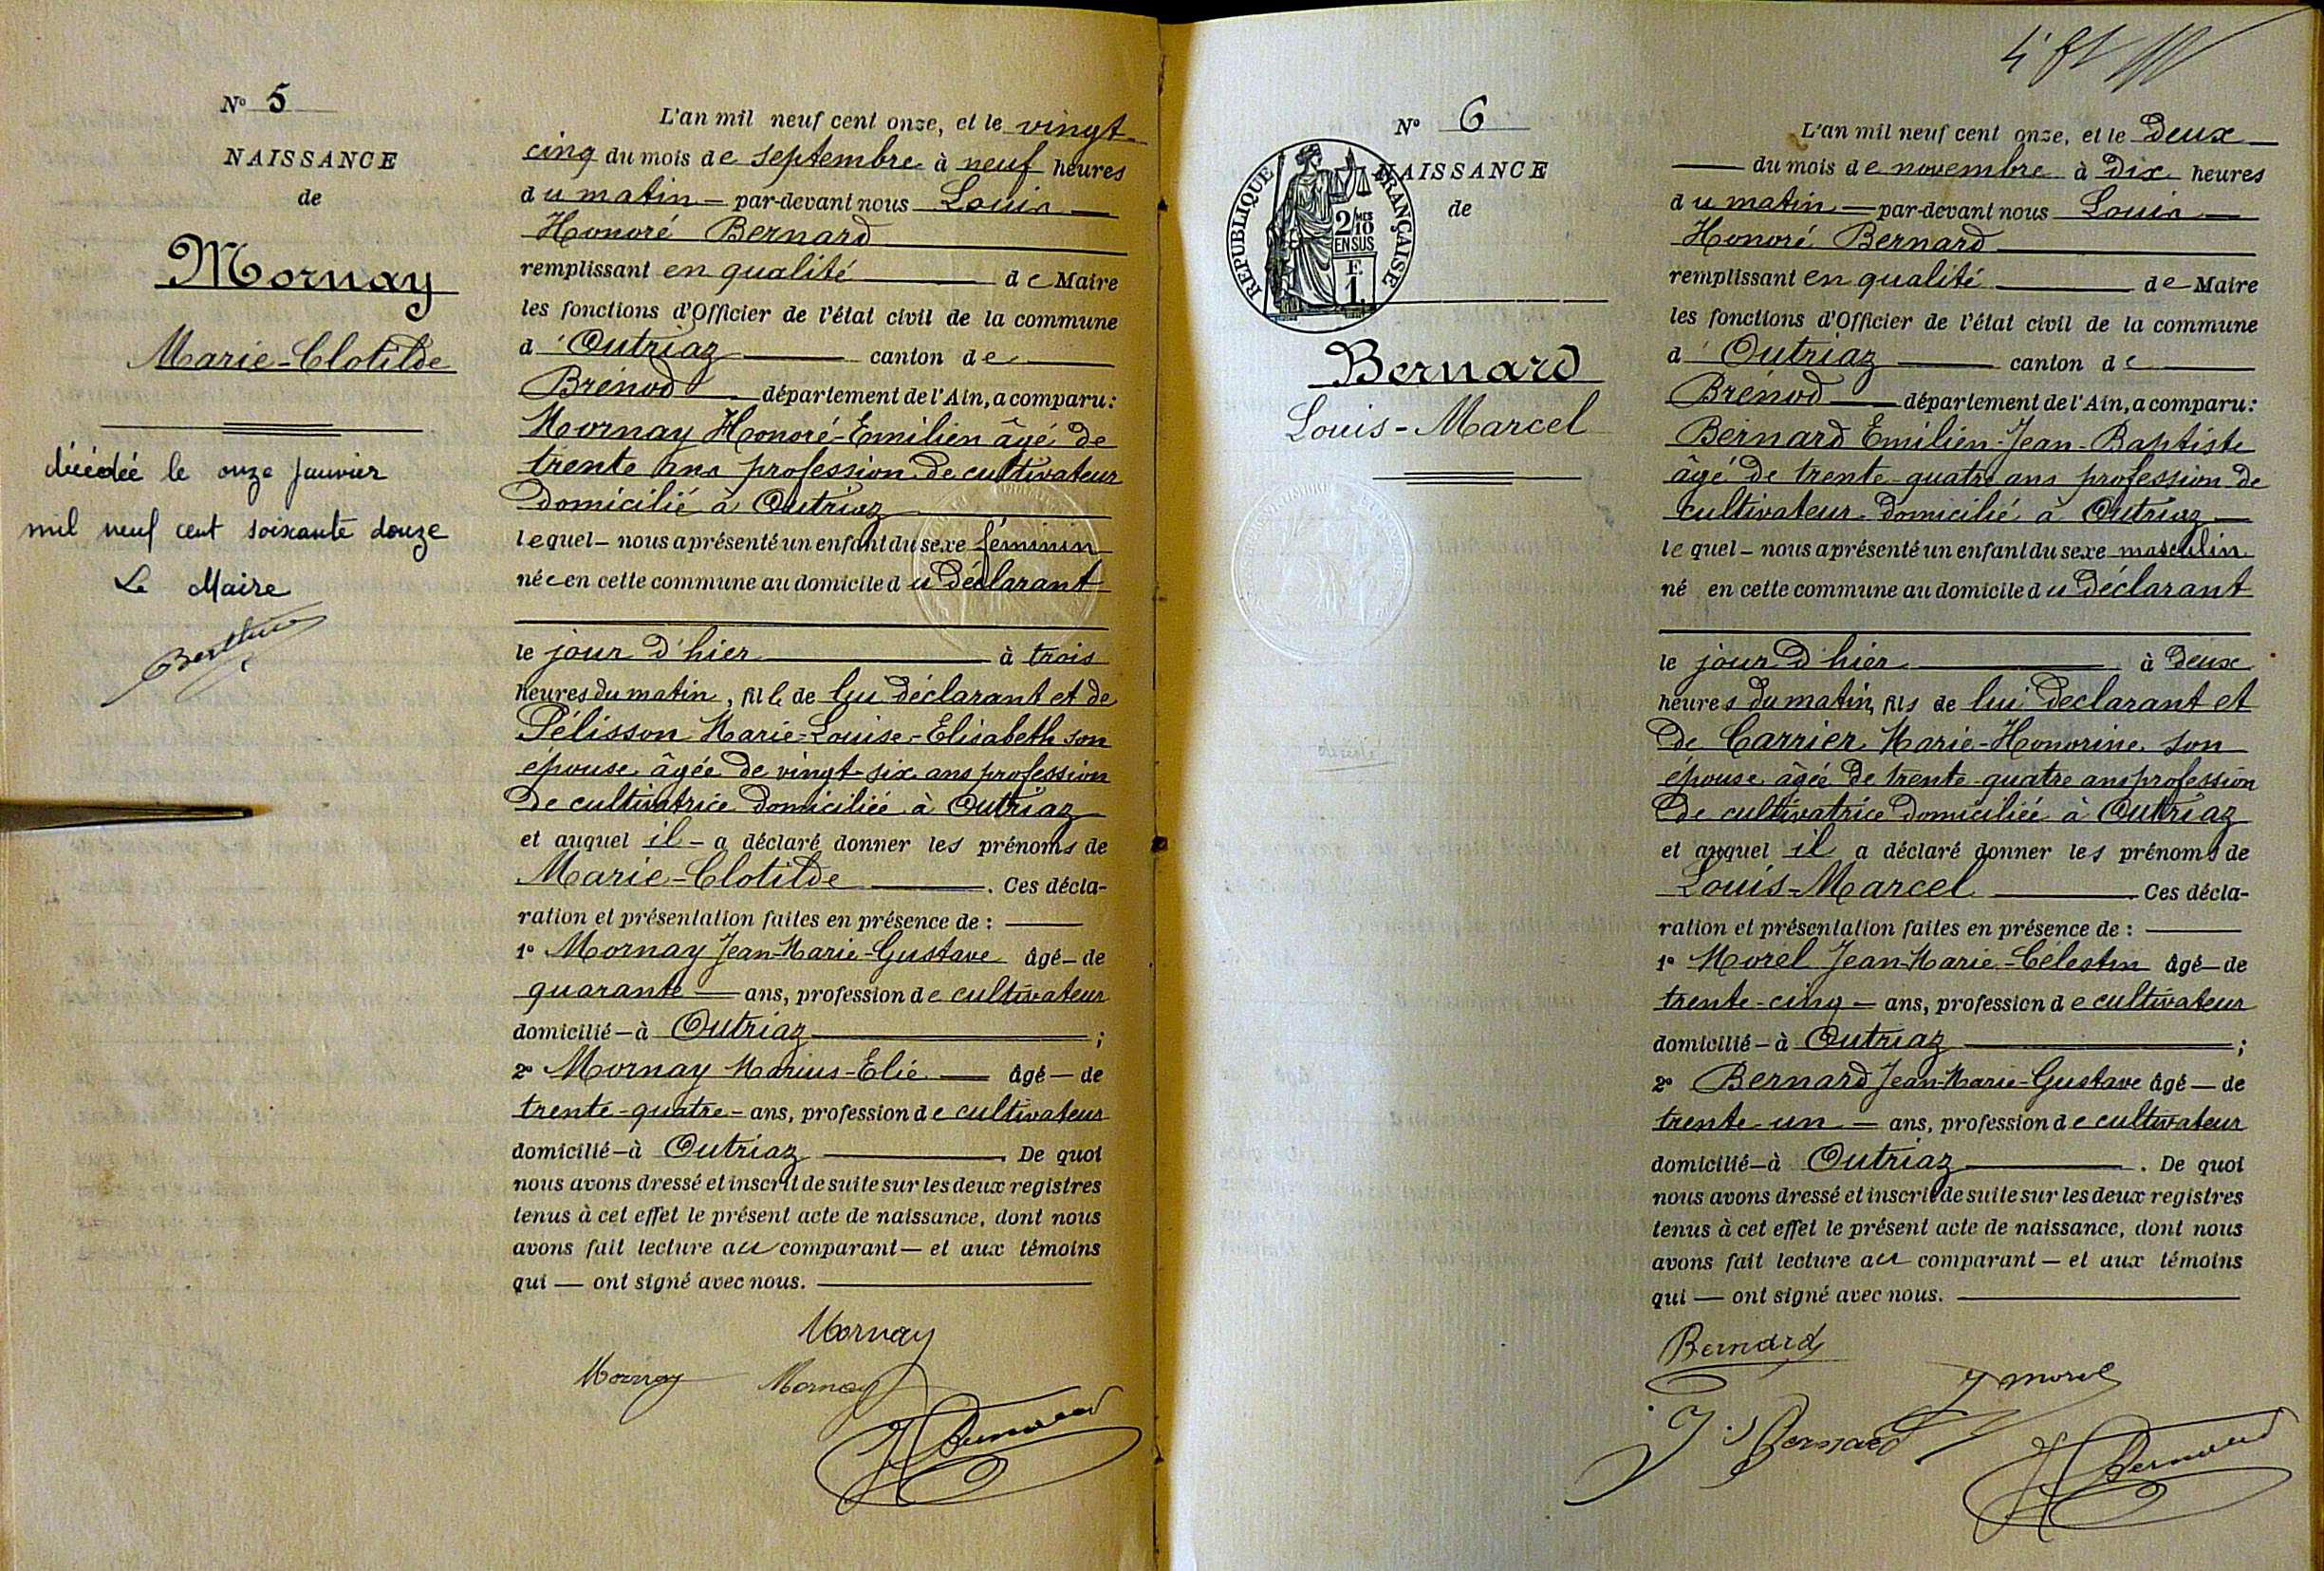 N° 5
NAISSANCE
de
Mornay
Marie-Clotilde
décédée le onze janvier
mil neuf cent soixante douze
Le Maire
L'an mil neuf cent onze, et le vingt-
cinq du mois de septembre à neuf heures
du matin — par-devant nous Louis —
Honoré Bernard
remplissant en qualité de Maire
les fonctions d'Officier de l'état civil de la commune
d'Outriaz canton de
Brénod département de l'Ain, a comparu:
Mornay Honoré-Emilien âgé de
trente ans profession de cultivateur
domicilié à Outriaz
lequel — nous a présenté un enfant du sexe féminin
née en cette commune au domicile du déclarant
le jour d'hier à trois
heures du matin, fille de lui déclarant et de
Pélisson Marie-Louise-Elisabeth son
épouse âgée de vingt-six ans profession
de cultivatrice domiciliée à Outriaz
et auquel il — a déclaré donner les prénoms de
Marie-Clotilde . Ces décla-
ration et présentation faites en présence de :
1° Mornay Jean-Marie-Gustave âgé — de
quarante — ans, profession de cultivateur
domicilié — à Outriaz ;
2° Mornay Marius-Elie — âgé — de
trente-quatre — ans, profession de cultivateur
domicilié — à Outriaz . De quoi
nous avons dressé et inscrit de suite sur les deux registres
tenus à cet effet le présent acte de naissance, dont nous
avons fait lecture au comparant — et aux témoins
qui — ont signé avec nous.
Mornay
Mornay Mornay
H Bernard
N° 6
NAISSANCE
de
REPUBLIQUE FRANÇAISE
2/10 MES
EN SUS
F.
1
Bernard
Louis-Marcel
L'an mil neuf cent onze, et le deux —
— du mois de novembre à dix heures
du matin — par-devant nous Louis —
Honoré Bernard
remplissant en qualité de Maire
les fonctions d'Officier de l'état civil de la commune
d'Outriaz canton de
Brénod département de l'Ain, a comparu:
Bernard Emilien-Jean-Baptiste
âgé de trente-quatre ans profession de
cultivateur domicilié à Outriaz —
lequel — nous a présenté un enfant du sexe masculin
né en cette commune au domicile du déclarant
le jour d'hier à deux
heures du matin, fils de lui déclarant et
de Carrier Marie-Honorine son
épouse âgée de trente-quatre ans profession
de cultivatrice domiciliée à Outriaz
et auquel il a déclaré donner les prénoms de
Louis-Marcel . Ces décla-
ration et présentation faites en présence de :
1° Morel Jean-Marie-Célestin âgé — de
trente-cinq — ans, profession de cultivateur
domicilié — à Outriaz ;
2° Bernard Jean-Marie-Gustave âgé — de
trente-un — ans, profession de cultivateur
domicilié — à Outriaz . De quoi
nous avons dressé et inscrit de suite sur les deux registres
tenus à cet effet le présent acte de naissance, dont nous
avons fait lecture au comparant — et aux témoins
qui — ont signé avec nous.
Bernard
J morel
J Bernard
H Bernard